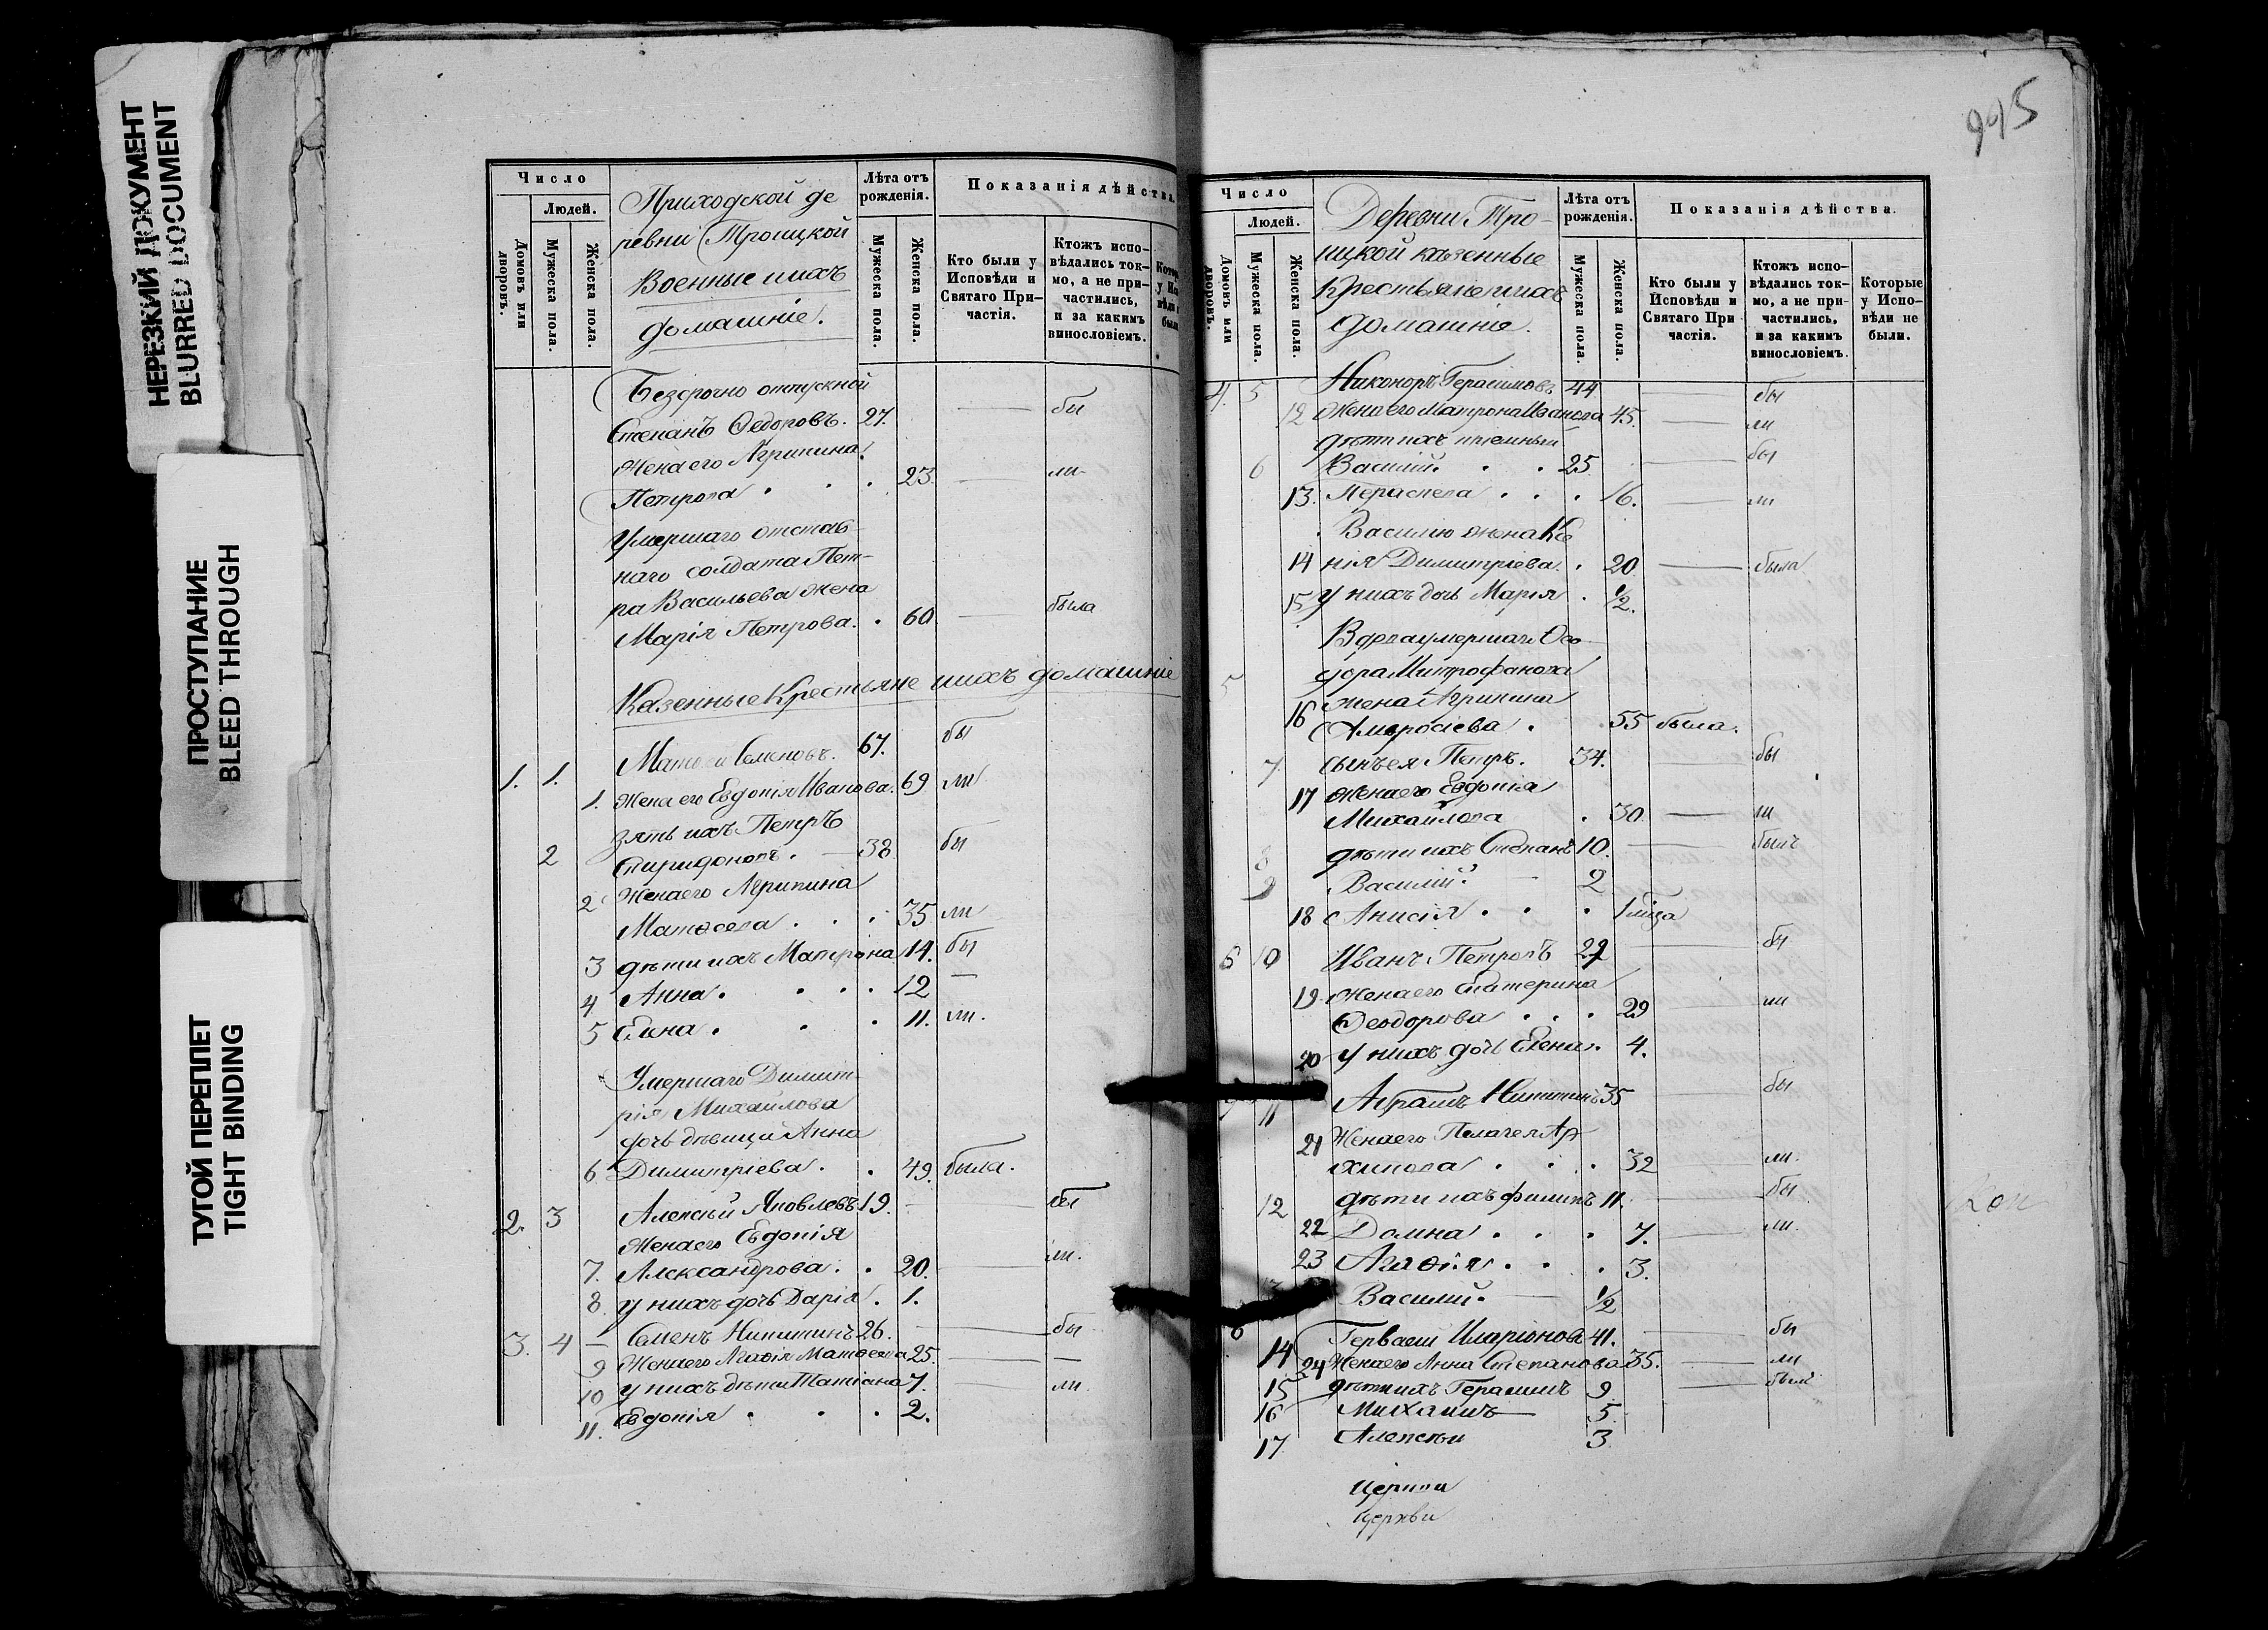 НЕРЕЗКИЙ ДОКУМЕНТ
BLURRED DOCUMENT
ПРОСТУПАНИЕ
BLEED THROUGH
ТУГОЙ ПЕРЕПЛЕТ
TIGHT BINDING
Число
Людей.
Домовъ или дворовъ.
Мужеска пола.
Женска пола.
Приходской де
ревни Троицкой
Военные ихъ
домашніе.
Лѣта отъ рожденія.
Мужеска пола.
Женска пола.
Показанія дѣйства.
Кто были у Исповѣди и Святаго При-частія.
Ктожъ испо-вѣдались ток-мо, а не при-частились, и за какимъ винословіемъ.
Безсрочно отпускной
Степанъ Ѳедоровъ. 27. бы
Жена его Агрипина
Петрова 23. ли
Умершаго отстав
наго солдата Пет-
ра Васильева жена
Марія Петрова. 60 была
Казенные Крестьяне ихъ домашніе
1. 1. Матѳей Семеновъ. 67. бы
1. Жена его Евдокія Иванова. 69 ли
зять ихъ Петръ
2 Спиридоновъ. 38 бы
Жена его Агрипина
2 Матѳеева 35 ли
3 дѣти ихъ Матрона 14. бы
4 Анна. 12 —
5 Елена. 11. ли.
Умершаго Димит-
рія Михайлова
дочь дѣвица Анна
6 Димитріева. 49. была.
2. 3 Алексѣй Яковлевъ 19. бы
Жена его Евдокія
7. Александрова. 20. ли.
8. у нихъ дочь Дарія. 1.
3. 4 — Семенъ Никитинъ 26. бы
9 Жена его Агаѳія Матѳеева 25. —
10 у нихъ дѣти Татіана 7. ли
11. Евдокія 2.
995
Число
Людей.
Домовъ или дворовъ.
Мужеска пола.
Женска пола.
Деревни Тро-
ицкой казенные
Крестьяне ихъ
домашніе.
Лѣта отъ рожденія.
Мужеска пола.
Женска пола.
Показанія дѣйства.
Кто были у Исповѣди и Святаго При частія.
Ктожъ испо-вѣдались ток-мо, а не при-частились, и за какимъ винословіемъ.
Которые у Испо-вѣди не были.
4. 5 Никоноръ Герасимовъ 44 бы
12 Жена его Матрона Иванова 45. ли
дѣти ихъ приемный
6 Василій. 25 бы
13. Параскева 16. ли
Василію жена Ксе
14 нія Димитріева. 20 была
15 у нихъ дочь Марія 1/2.
Вдова умершаго Ѳео
5 дора Митрофанова
жена Агрипина
16 Амвросіева. 55 была.
7. сынъ ея Петръ. 34. бы
17 Жена его Евдокія
Михайлова 30. ли
8 дѣти ихъ Степанъ 10. былъ
9 Василій. 2
18 Анисія
6 10 Иванъ Петровъ 27 бы
19 Жена его Екатерина
Ѳеодорова 29 ли
20 у нихъ дочь Елена. 4.
7 11 Абрамъ Никитинъ 35 бы
21 Жена его Пелагея Ар
хипова 32 ли.
12 дѣти ихъ Филипъ 11. бы
22 Домна 7. ли.
23 Агаѳія 3.
Василій. 1/2
14 Гервасій Иларіоновъ 41. бы
24 Жена его Анна Степанова 35. ли
15 дѣти ихъ Герасимъ 9. былъ
16 Михаилъ 5.
17 Алексѣй 3
Церкви
Церкви